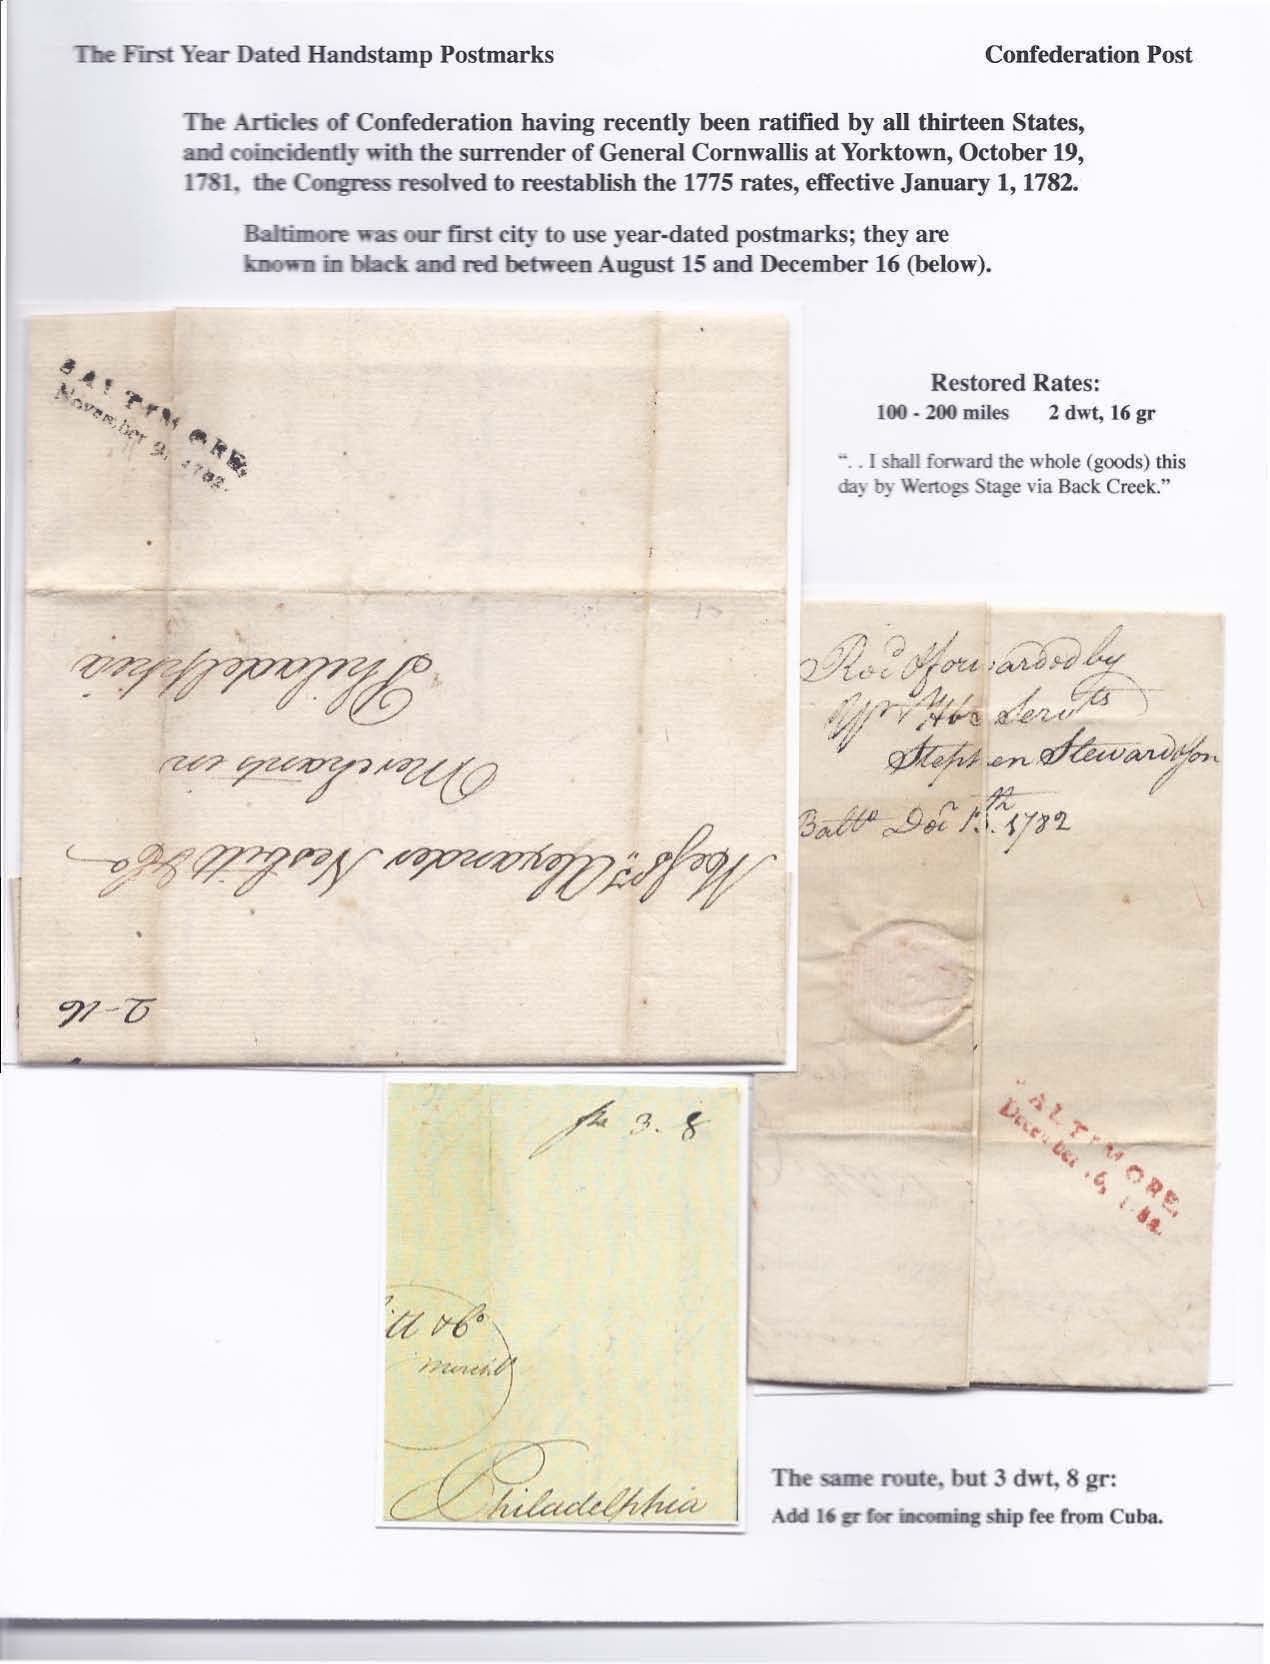 The First Year Dated Handstamp Postmarks
Confederation Post
The Articles of Confederation having recently been ratified by all thirteen States,
and coincidently with the surrender of General Cornwallis at Yorktown, October 19,
1781, the Congress resolved to reestablish the 1775 rates, effective January 1, 1782.
Baltimore was our first city to use year-dated postmarks; they are
known in black and red between August 15 and December 16 (below).
BALTIMORE,
November 9, 1782.
Restored Rates:
100 - 200 miles 2 dwt, 16 gr
“. . I shall forward the whole (goods) this
day by Wertogs Stage via Back Creek.”
Messrs. Alexander Nesbitt & Co
Merchants in
Philadelphia
2-16
Recd & forwarded by
Servts
Stephen Steward & Son
Balto Decr 15th 1782
BALTIMORE,
December 16, 1782.
3. 8
itt & Co
Merchts
Philadelphia
The same route, but 3 dwt, 8 gr:
Add 16 gr for incoming ship fee from Cuba.